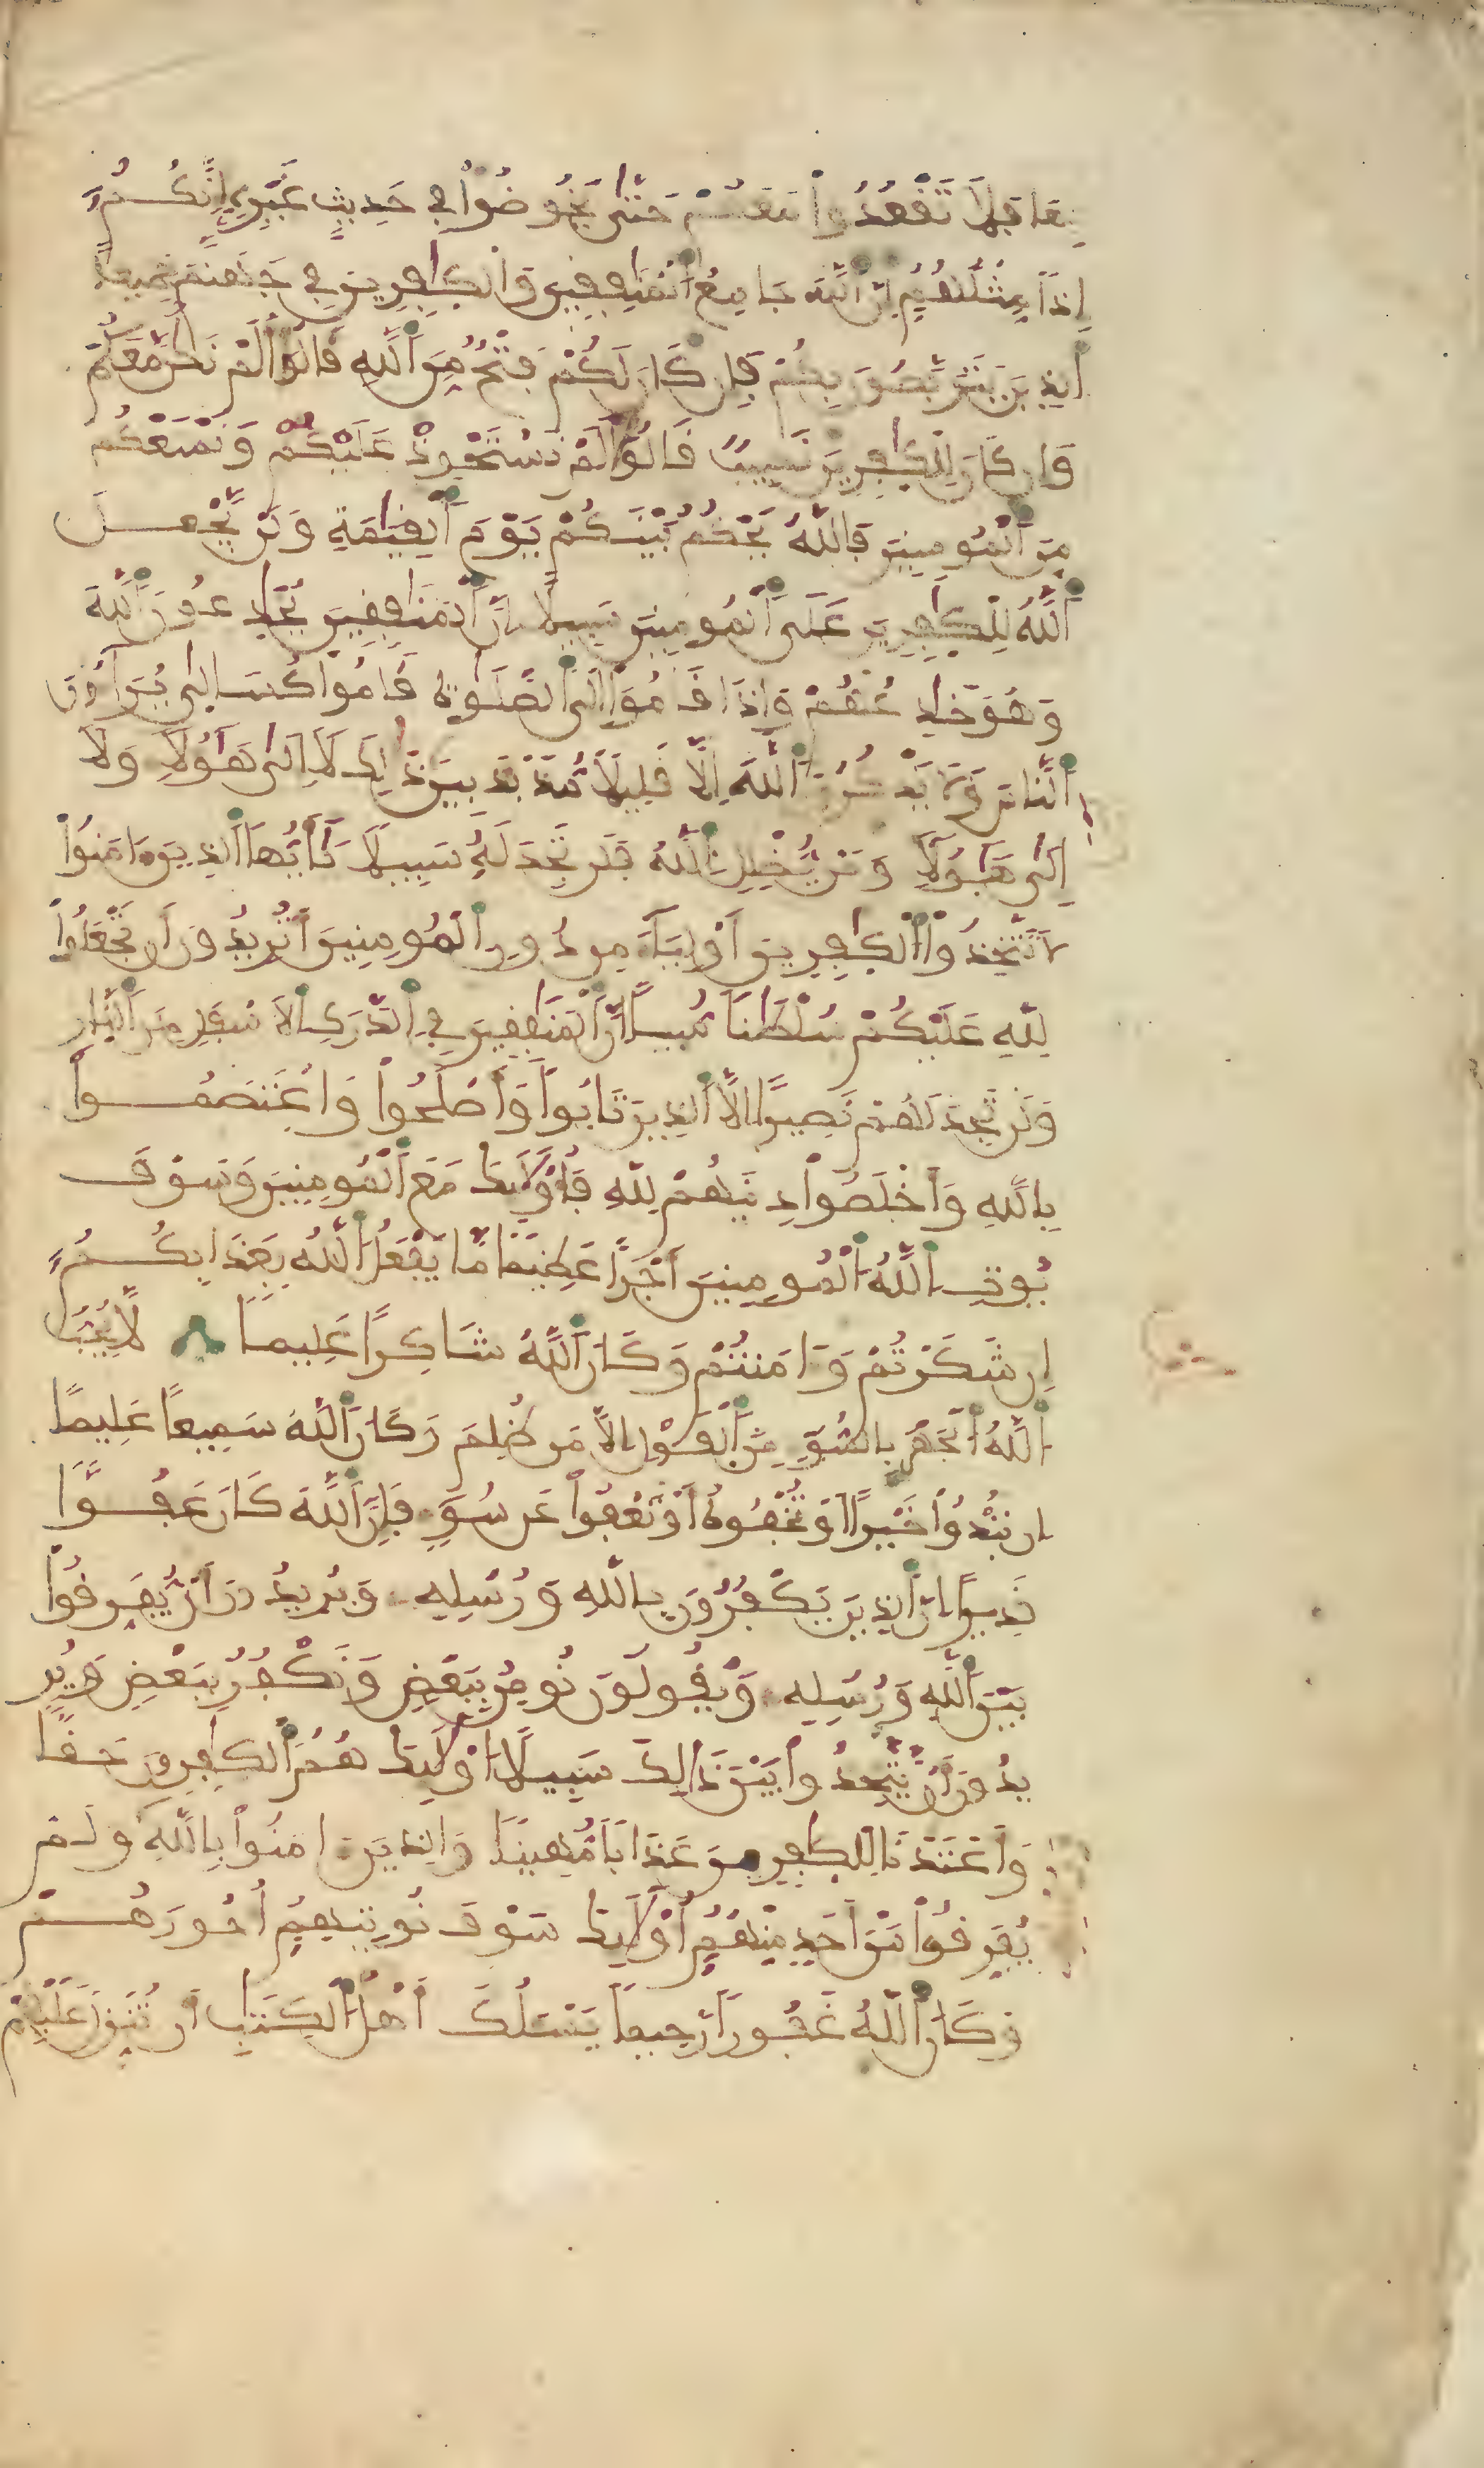 بها فلا تقعدوا معهم حتى يخوضوا في حديث غيره إنكم
إذا مثلهم إن الله جامع المنافقين والكافرين في جهنم جميعا
الذين يتربصون بكم فإن كان لكم فتح من الله قالوا ألم نكن معكم
وإن كان للكافرين نصيب قالوا ألم نستحوذ عليكم ونمنعكم
من المومنين فالله يحكم بينكم يوم القيامة ولن يجعل
الله للكافرين على المومنين سبيلا إن المنافقين يخادعون الله
وهو خادعهم وإذا قاموا إلى الصلوة قاموا كسالى يراءون
الناس ولا يذكرون الله إلا قليلا مذبذبين بين ذلك لا إلى هؤلاء ولا
إلى هؤلاء ومن يضلل الله فلن تجد له سبيلا يأيها الذين ءامنوا
لا تتخذوا الكافرين أولياء من دون المومنين أتريدون أن تجعلوا
لله عليكم سلطنا مبينا إن المنافقين في الدرك الاسفل من النار
ولن تجد لهم نصيرا إلا الذين تابوا وأصلحوا واعتصموا
بالله وأخلصوا دينهم لله فأولئك مع المومنين وسوف
يوت الله المومنين أجرا عظيما ما يفعل الله بعذابكم
إن شكرتم وءامنتم وكان الله شاكرا عليما لا يحب
الله الجهر بالسوء من القول إلا من ظلم وكان الله سميعا عليما
إن تبدوا خيرا أو تخفوه أو تعفوا عن سوء فإن الله كان عفوا
قديرا إن الذين يكفرون بالله ورسله ويريدون أن يفرقوا
بين الله ورسله ويقولون نومن ببعض ونكفر ببعض وير
يدون أن يتخذوا بين ذلك سبيلا أولئك هم الكافرون حقا
وأعتدنا للكافرين عذابا مهينا والذين ءامنوا بالله ولم
يفرقوا بين أحد منهم أولئك سوف نوتيهم أجورهم
وكان الله غفورا رحيما يسئلك أهل الكتاب أن تنزل عليهم